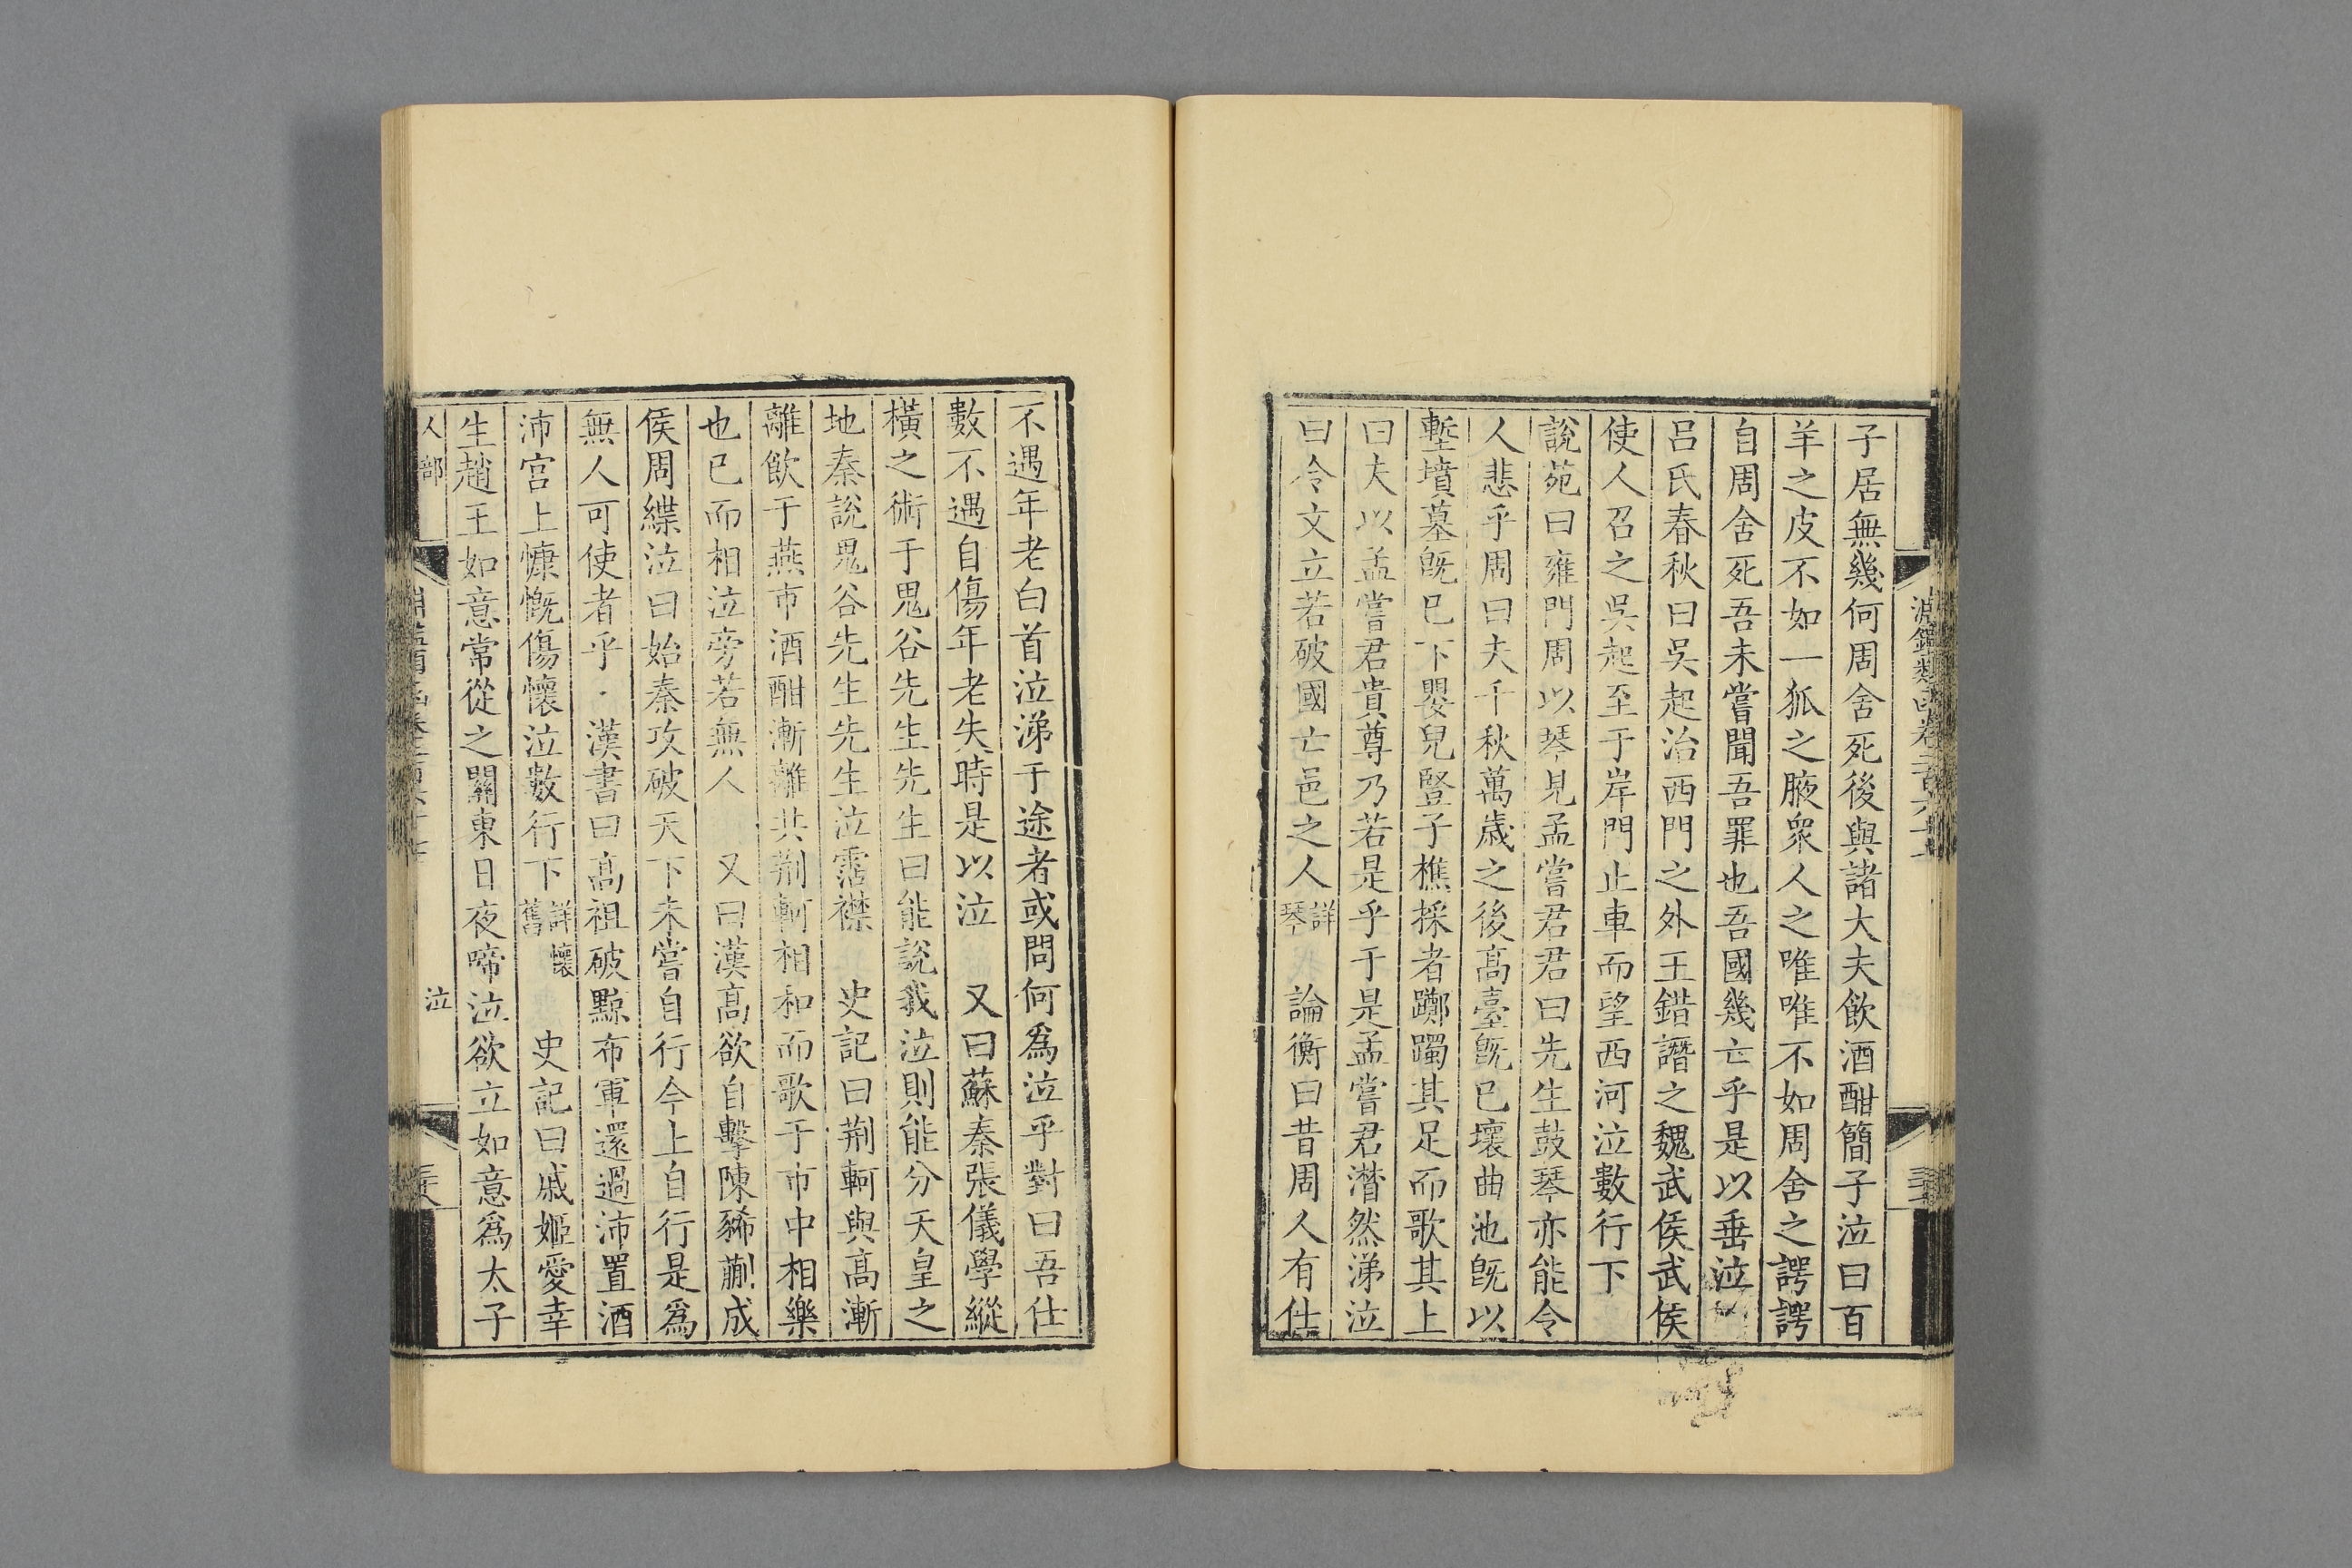 子居無幾何周舍死後與諸大夫飲酒酣簡子泣曰百
羊之皮不如一狐之腋衆人之唯唯不如周舍之諤諤
自周舍死吾未嘗聞吾罪也吾國幾亡乎是以垂泣
呂氏春秋曰吳起治西門之外王錯譖之魏武侯武侯
使人召之吳起至于岸門止車而望西河泣數行下
說苑曰雍門周以琴見孟嘗君君曰先生鼓琴亦能令
人悲乎周曰夫千秋萬歲之後高臺旣已壞曲池旣以
塹墳墓旣已下嬰兒豎子樵採者躑躅其足而歌其上
曰夫以孟嘗君貴尊乃若是乎于是孟嘗君潸然涕泣
曰令文立若破國亡邑之人詳琴 論衡曰昔周人有仕
不遇年老白首泣涕于途者或問何爲泣乎對曰吾仕
數不遇自傷年老失時是以泣 又曰蘇秦張儀學縱
橫之術于鬼谷先生先生曰能說我泣則能分天皇之
地秦說鬼谷先生先生泣霑襟 史記曰荆軻與高漸
離飲于燕市酒酣漸離共荆軻相和而歌于市中相樂
也已而相泣旁若無人 又曰漢高欲自擊陳豨蒯成
侯周緤泣曰始秦攻破天下未嘗自行今上自行是爲
無人可使者乎 漢書曰高祖破黥布軍還過沛置酒
沛宮上慷慨傷懷泣數行下詳懷舊 史記曰戚姬愛幸
生趙王如意常從之關東日夜啼泣欲立如意爲太子
人部 泣